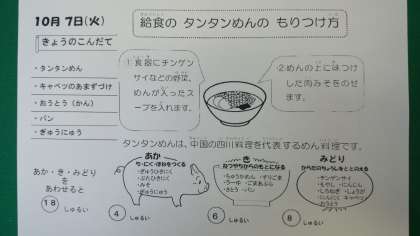 10月 7日(火)
給食の タンタンめんの もりつけ方
きょうのこんだて
・タンタンめん
・キャベツのあまずづけ
・おうとう(かん)
・パン
・ぎゅうにゅう
①食器にチンゲン
サイなどの野菜、
めんが入ったス
ープを入れます。
②めんの上に味つけ
した肉みそをのせ
ます。
タンタンめんは、中国の四川料理を代表するめん料理です。
あか・き・みどり
を
あわせると
18 しゅるい
あか
ち・にく・ほねをつくる
・ぎゅうひきにく
・ぶたひきにく
・みそ
・ぎゅうにゅう
4 しゅるい
き
ねつやちからのもとになる
・ちゅうかめん
・すりごま
・ごまあぶら
・さとう ・パン
6 しゅるい
みどり
からだのちょうしをととのえる
・チンゲンサイ
・もやし ・にんじん
・しろねぎ ・しょうが
・にんにく キャベツ
・おうとう
8 しゅるい